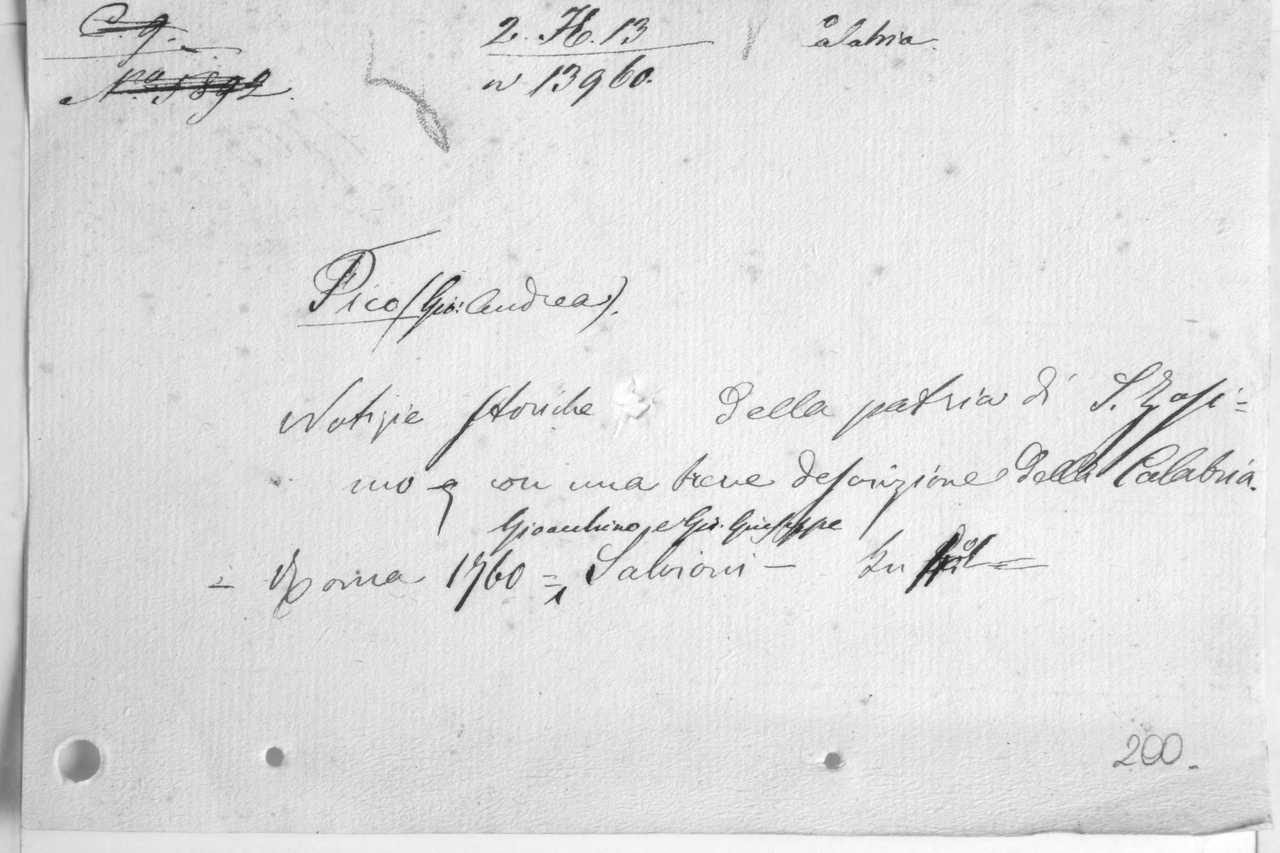 C. 9. 2. H. 13 Calabria.
N.º 5892. n 13960.
Pico (Gio: Andrea).
Notizie storiche della patria di S. Zosi=
mo con una breve descrizione della Calabria.
Gioacchino, e Gio. Giuseppe
= Roma 1760 = Salvioni — In
200.